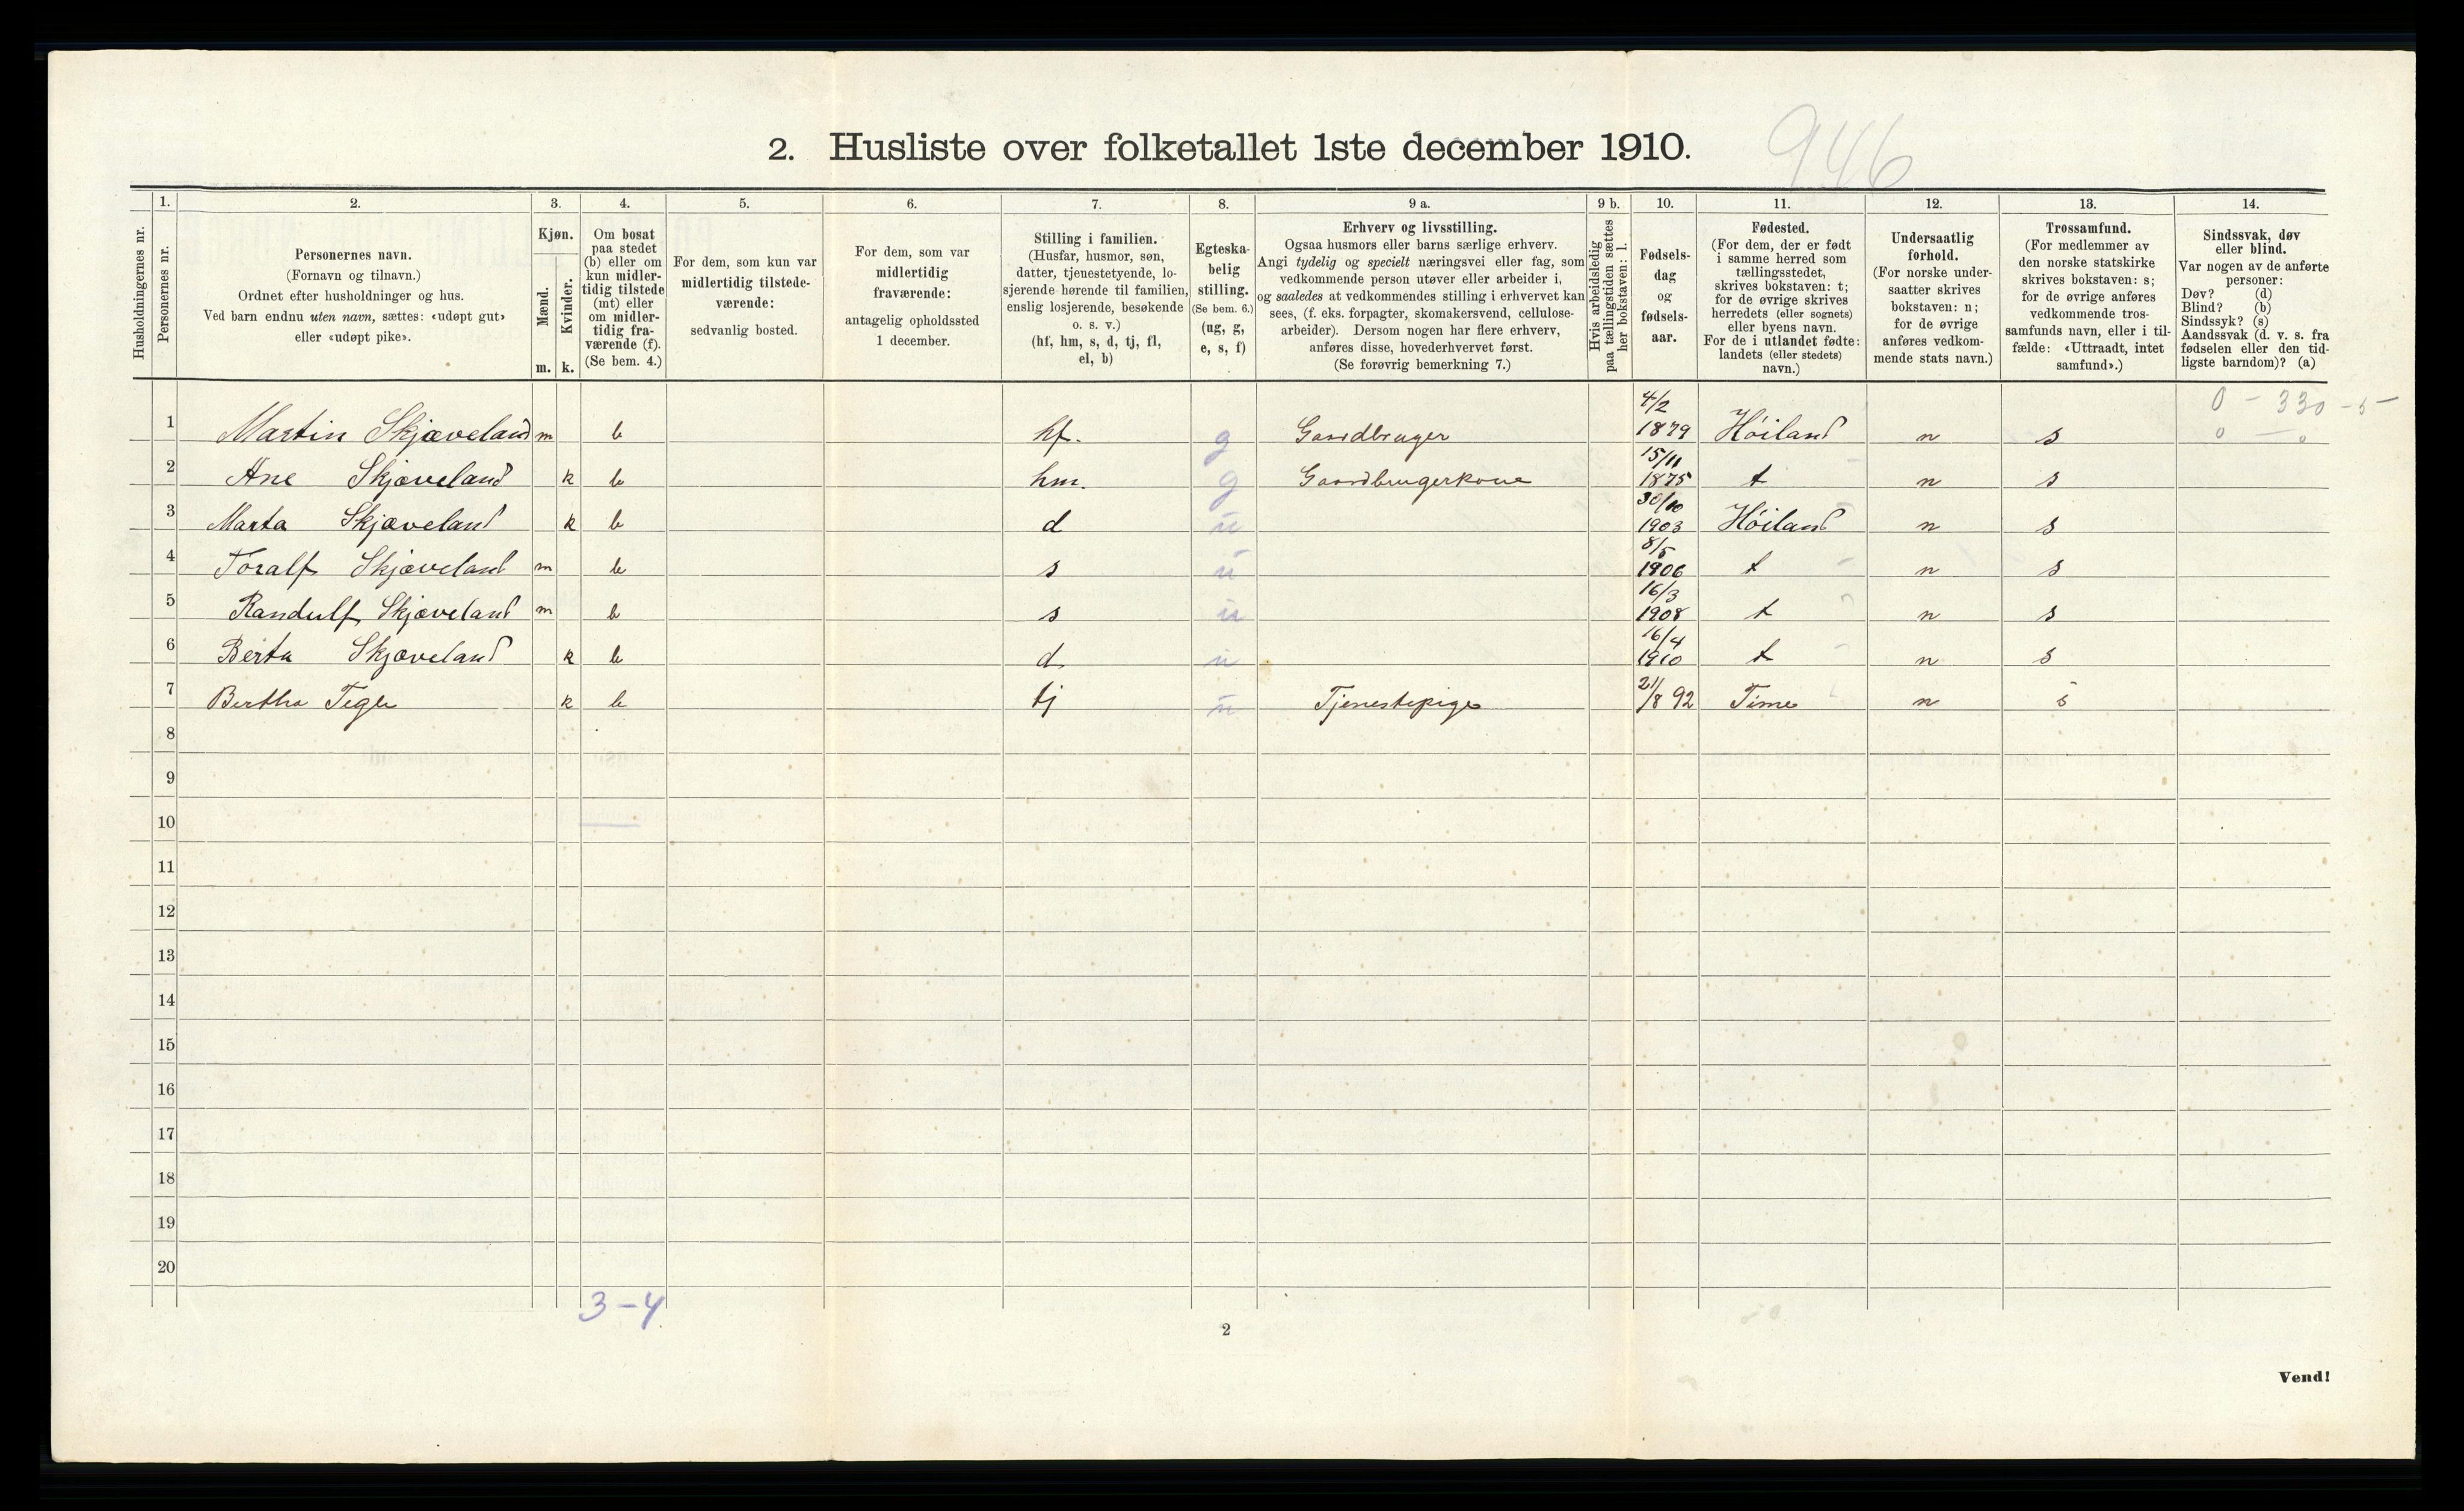 946
2. Husliste over folketallet 1ste december 1910.
Husholdningernes nr.
1. Personernes nr.
2. Personernes navn.
(Fornavn og tilnavn.)
Ordnet efter husholdninger og hus.
Ved barn endnu uten navn, sættes: «udøpt gut»
eller «udøpt pike».
3. Kjøn.
Mænd. m.
Kvinder. k.
4. Om bosat
paa stedet
(b) eller om
kun midler-
tidig tilstede
(mt) eller
om midler-
tidig fra-
værende (f).
(Se bem. 4.)
5. For dem, som kun var
midlertidig tilstede-
værende:
sedvanlig bosted.
6. For dem, som var
midlertidig
fraværende:
antagelig opholdssted
1 december.
7. Stilling i familien.
(Husfar, husmor, søn,
datter, tjenestetyende, lo-
sjerende hørende til familien,
enslig losjerende, besøkende
o. s. v.)
(hf, hm, s, d, tj, fl,
el, b)
8. Egteska-
belig
stilling.
(Se bem. 6.)
(ug, g,
e, s, f)
9 a. Erhverv og livsstilling.
Ogsaa husmors eller barns særlige erhverv.
Angi tydelig og specielt næringsvei eller fag, som
vedkommende person utøver eller arbeider i,
og saaledes at vedkommendes stilling i erhvervet kan
sees, (f. eks. forpagter, skomakersvend, cellulose-
arbeider). Dersom nogen har flere erhverv,
anføres disse, hovederhvervet først.
(Se forøvrig bemerkning 7.)
9 b. Hvis arbeidsledig
paa tællingstiden sættes
her bokstaven: l.
10. Fødsels-
dag
og
fødsels-
aar.
11. Fødested.
(For dem, der er født
i samme herred som
tællingsstedet,
skrives bokstaven: t;
for de øvrige skrives
herredets (eller sognets)
eller byens navn.
For de i utlandet fødte:
landets (eller stedets)
navn.)
12. Undersaatlig
forhold.
(For norske under-
saatter skrives
bokstaven: n;
for de øvrige
anføres vedkom-
mende stats navn.)
13. Trossamfund.
(For medlemmer av
den norske statskirke
skrives bokstaven: s;
for de øvrige anføres
vedkommende tros-
samfunds navn, eller i til-
fælde: «Uttraadt, intet
samfund».)
14. Sindssvak, døv
eller blind.
Var nogen av de anførte
personer:
Døv? (d)
Blind? (b)
Sindssyk? (s)
Aandssvak (d. v. s. fra
fødselen eller den tid-
ligste barndom)? (a)
0 - 330 - 5 -
1 Martin Skjæveland m b hf. g Gaardbruger 4/2 1879 Höiland n s 0 - 0
2 Ane Skjæveland k b hm. g Gaardbrugerkone 15/11 1875 t n s
3 Marta Skjæveland k b d u 30/10 1903 Höiland n s
4 Toralf Skjæveland m b s u 8/5 1906 t n s
5 Randulf Skjæveland m b s u 16/3 1908 t n s
6 Berta Skjæveland k b d u 16/4 1910 t n s
7 Bertha Tegle k b tj u Tjenestepige 21/8 92 Time n s
8
9
10
11
12
13
14
15
16
17
18
19
20
3-4
2
Vend!